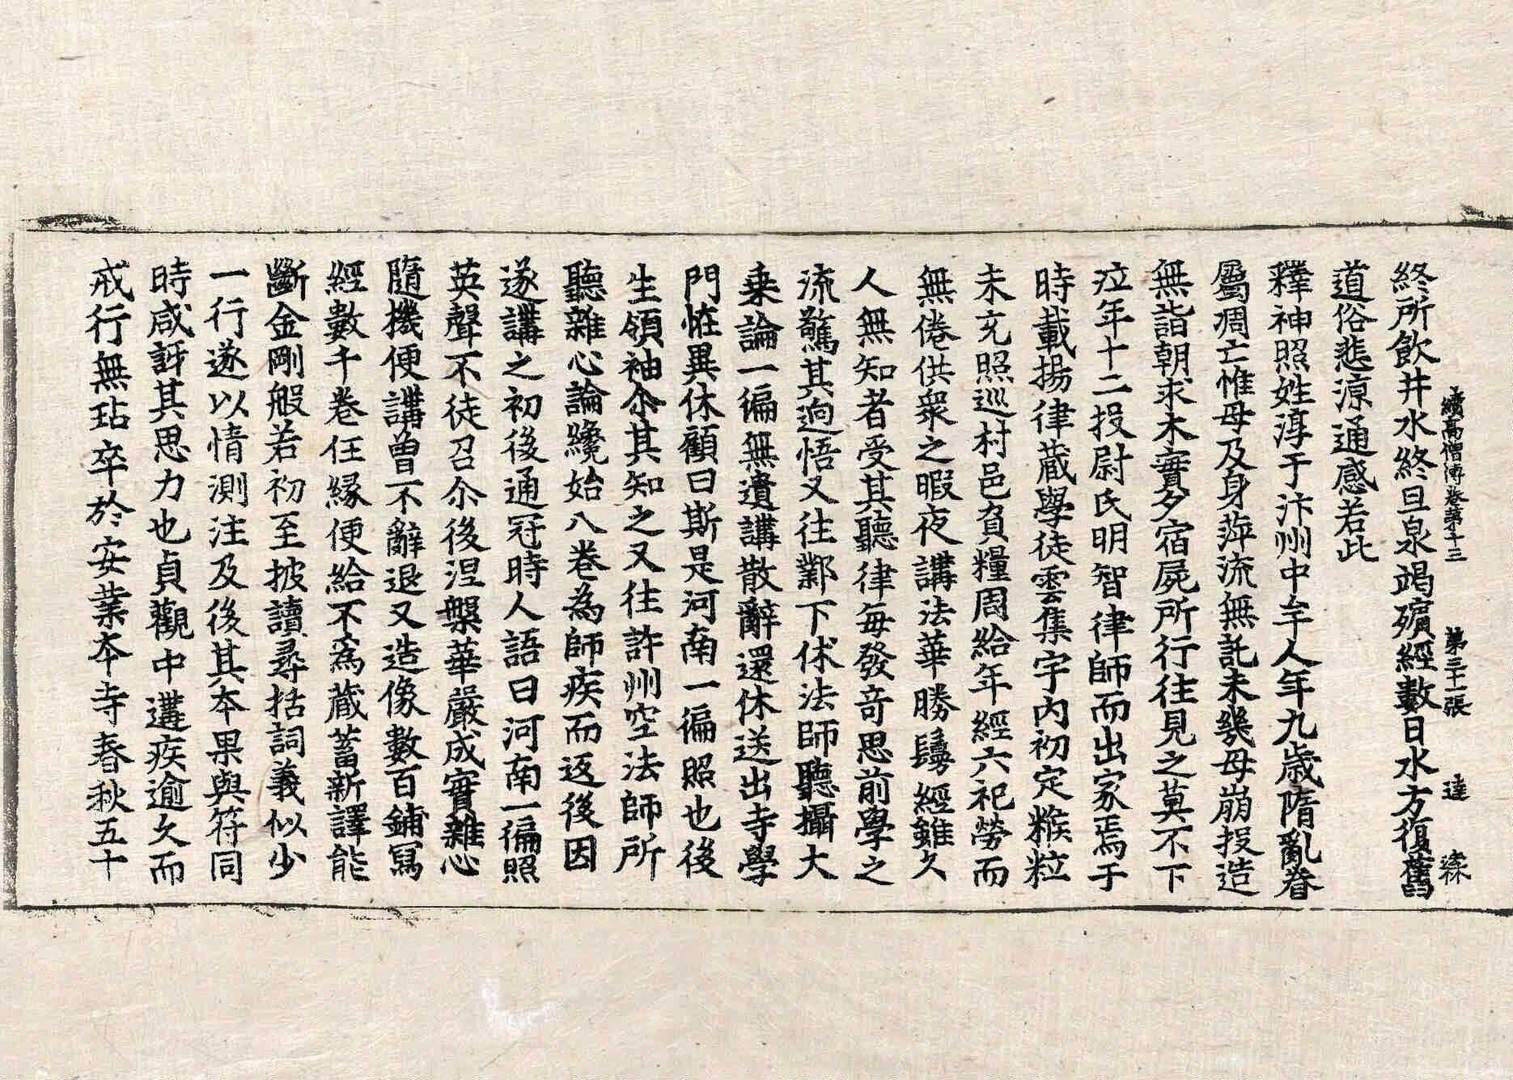 續高僧傳卷第十三　第三十一張　達
終所飲井水終旦泉竭殯經數日水方復舊
道俗悲凉通感若此
釋神照姓淳于汴州中牟人年九歲隋亂眷
屬凋亡惟母及身萍流無託未幾母崩投造
無詣朝求木實夕宿屍所行往見之莫不下
泣年十二投尉氏明智律師而出家焉于
時載揚律蔵學徒雲集宇内初定糇粒
未充照巡村邑負糧周給年經六祀勞而
無倦供衆之暇夜講法華勝鬘經雖久
人無知者受其聽律每發奇思前學之
流驚其逈悟又往鄴下休法師聽攝大
乗論一徧無遺講散辭還休送出寺學
門恠異休顧曰斯是河南一徧照也後
生領袖尒其知之又往許州空法師所
聽雜心論纔始八卷為師疾而返後因
遂講之初後通冠時人語曰河南一徧照
英聲不徒召尒後涅槃華嚴成實雜心
隨機便講曽不辭退又造像數百鋪寫
經數千卷任縁便給不爲蔵蓄新譯能
斷金剛般若初至披讀尋括詞義似少
一行遂以情測注及後其夲果與符同
時咸訝其思力也貞觀中遘疾逾久而
戒行無玷卒於安業夲寺春秋五十